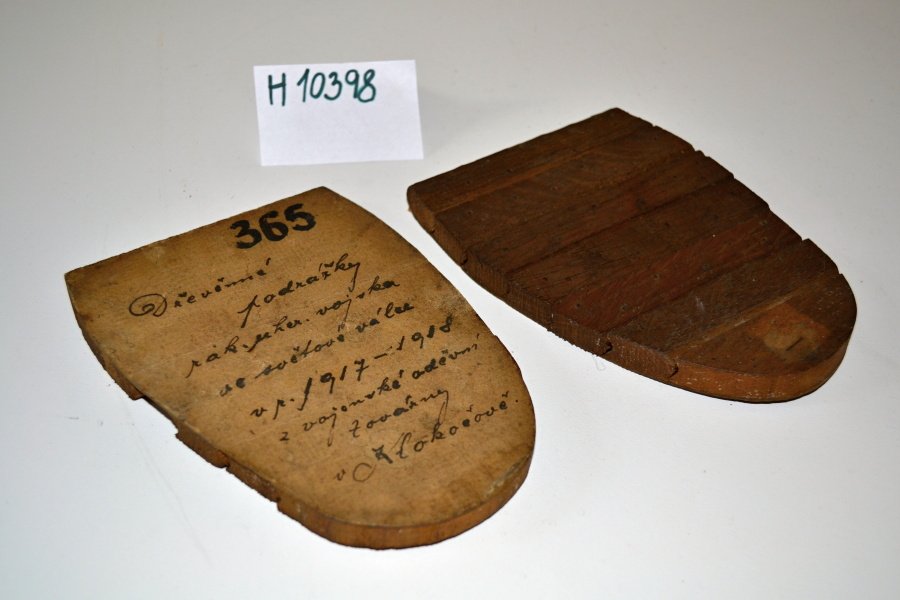 H 10398
365
Dřevěné
podrážky
rak. uher. vojska
ve světové válce
v r. 1917-1918
z vojenské oděvní
továrny
v Klokočově